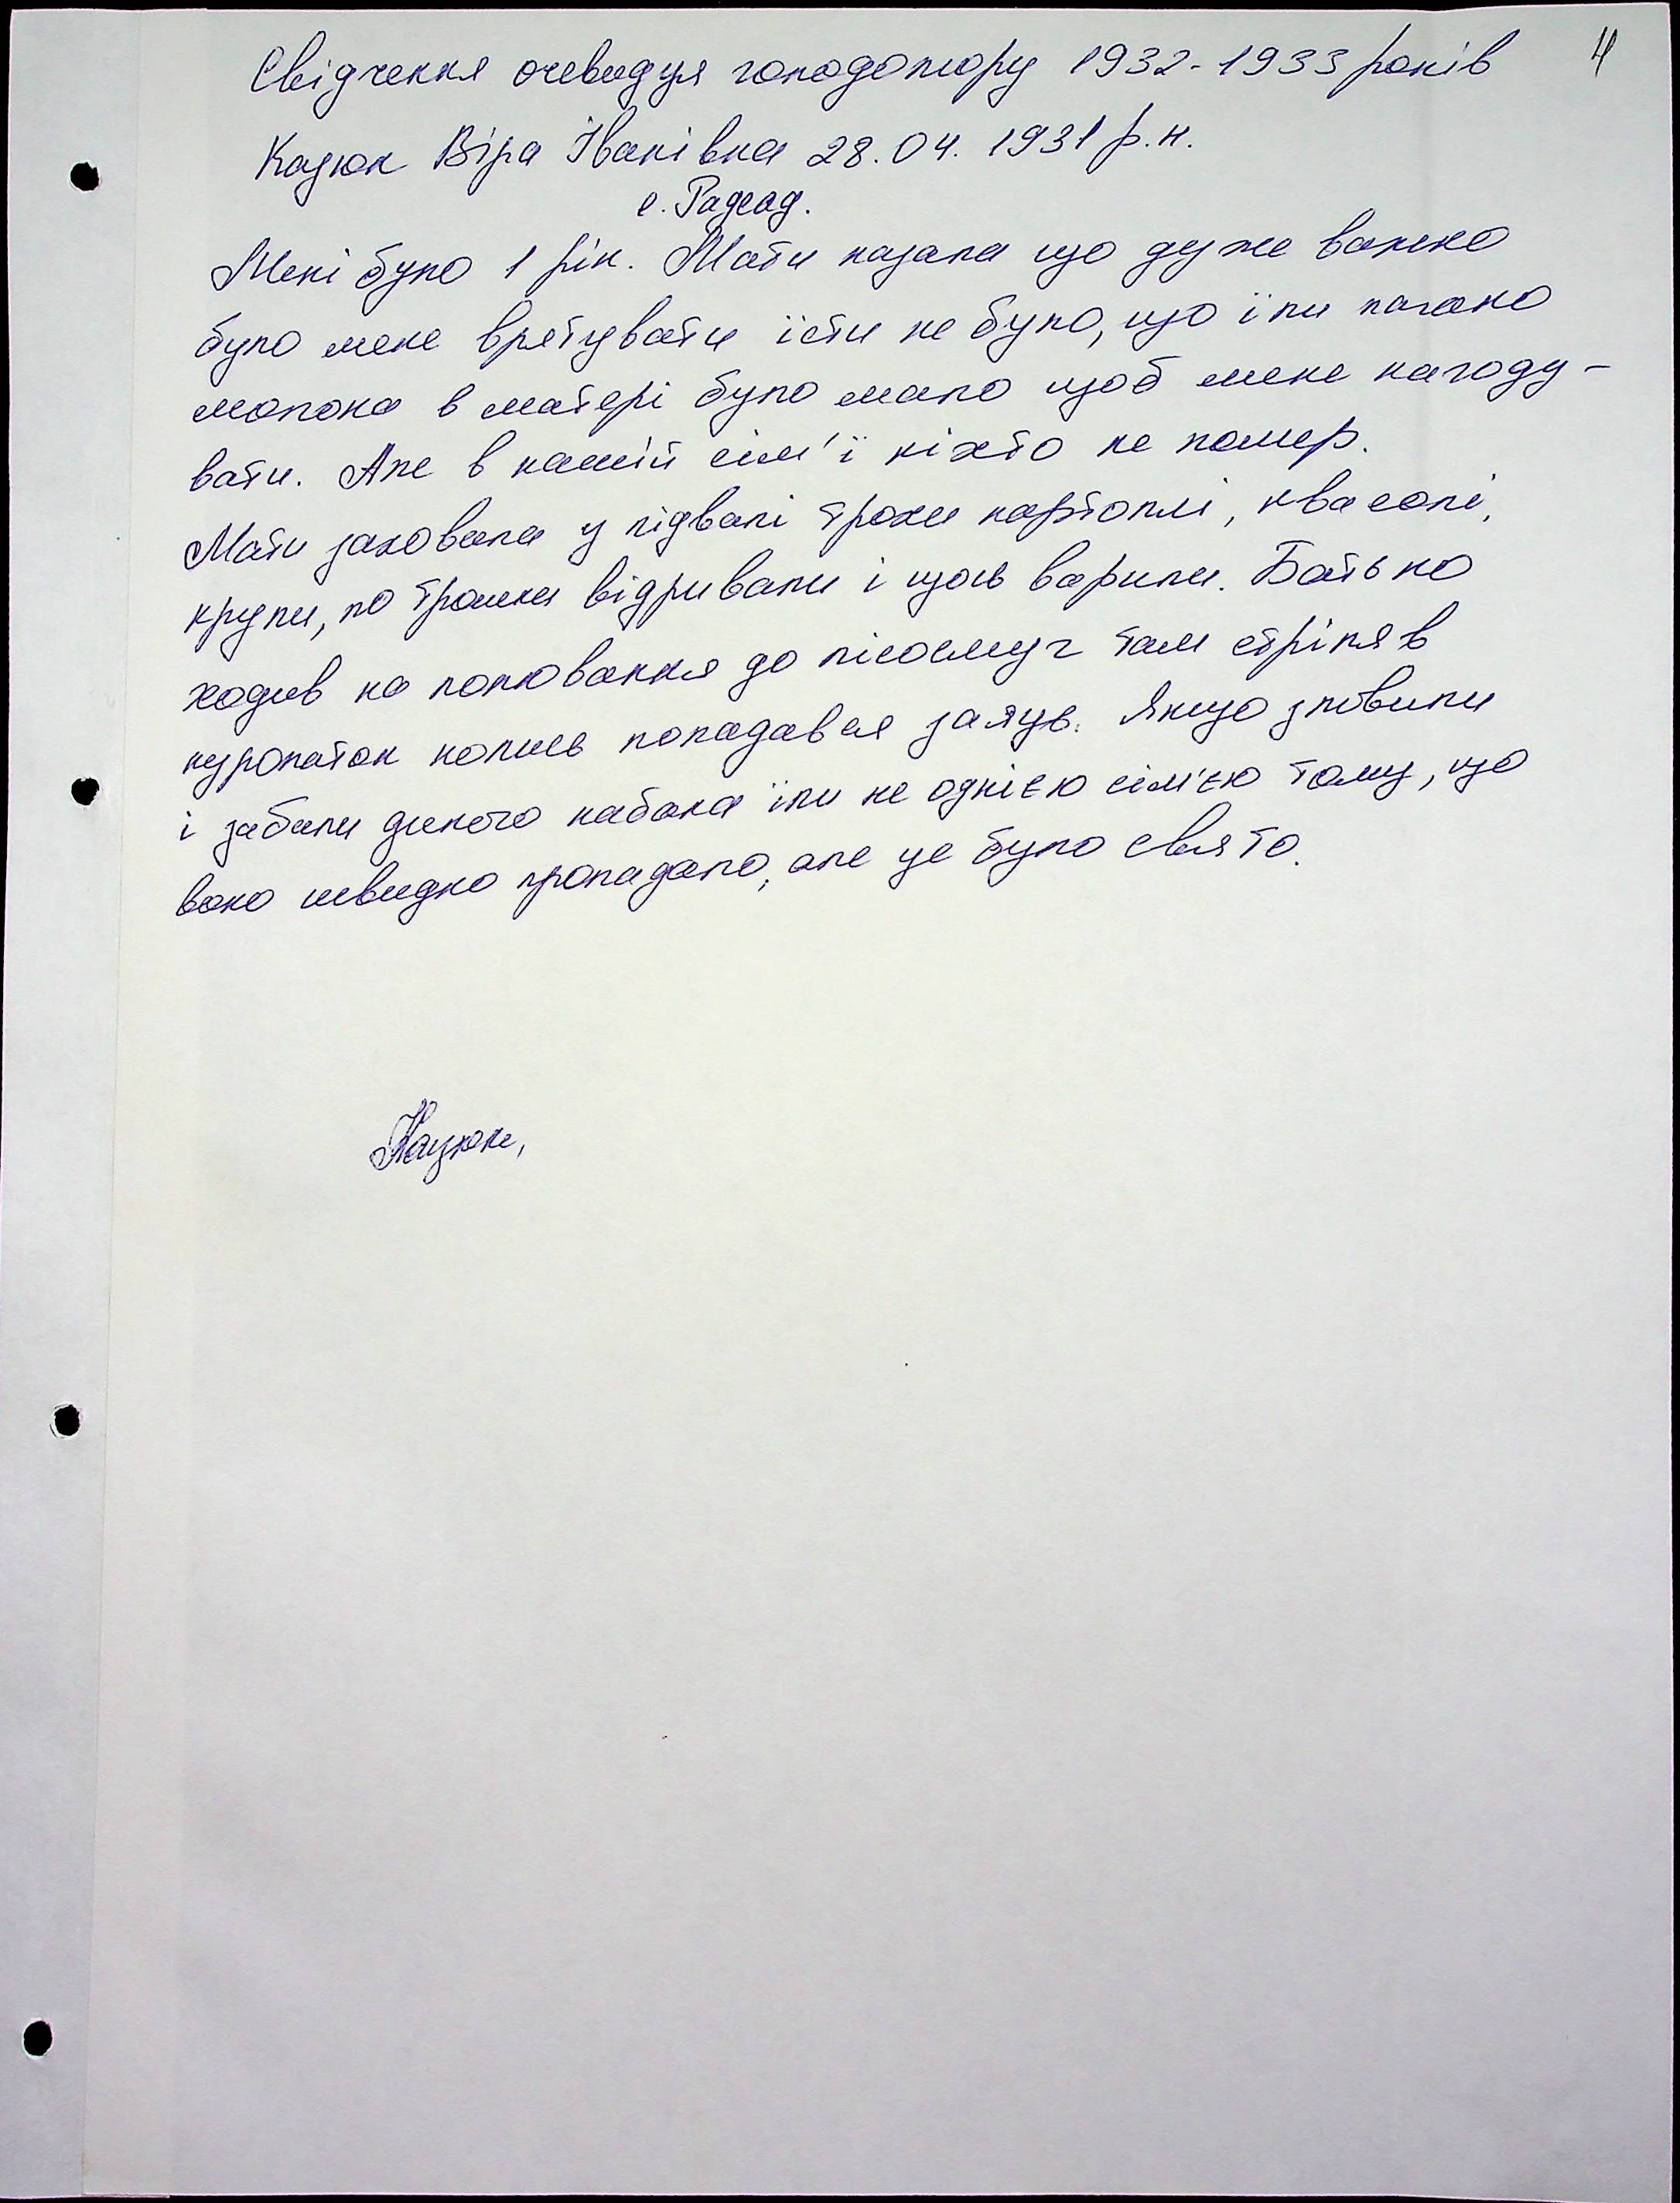 4
Свідчення очевидця голодомору 1932-1933 років
Кацюк Віра Іванівна 28.04. 1931 р.н.
с. Радсад.
Мені було 1 рік. Мати казала що дуже важко
було мене врятувати їсти не було, що їли погано
молока в матері було мало щоб мене нагоду-
вати. Але в нашій сім'ї ніхто не помер.
Мати заховала у підвалі трохи картоплі, квасолі,
крупи, по трошки відривали і щось варили. Батько
ходив на полювання до лісосмуг там стріляв
куропаток колись попадався заяць. Якщо зловили
і забили дикого кабана їли не однією сім'єю тому, що
воно швидко пропадало, але це було свято.
Кацюк